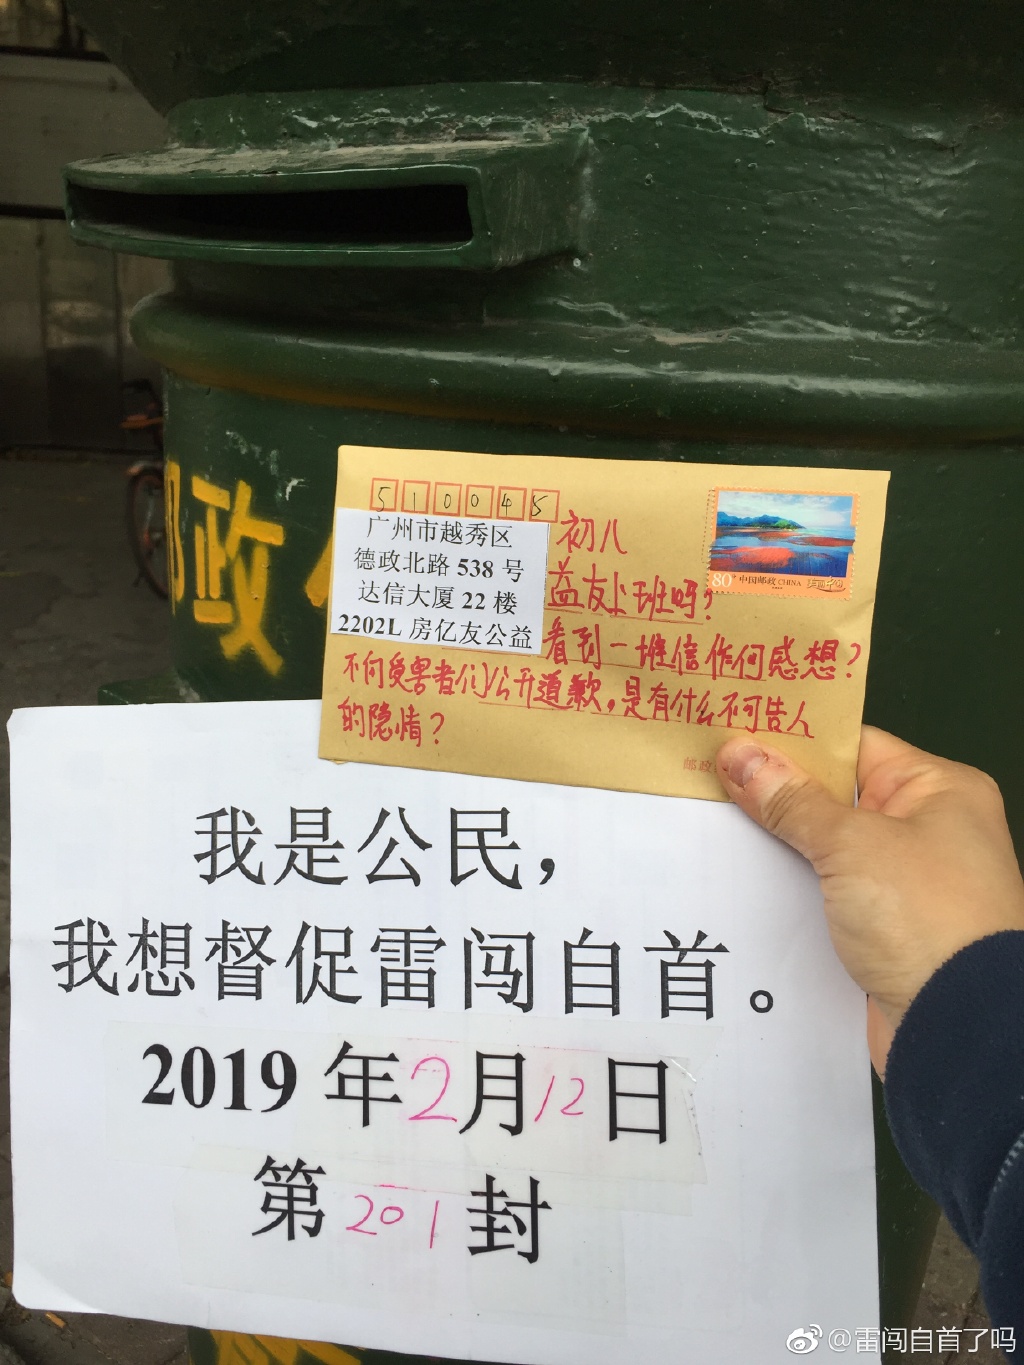 邮政
510045
广州市越秀区
德政北路 538 号
达信大厦 22 楼
2202L 房亿友公益
80分 中国邮政 CHINA
初八
益友上班吗?
看到一堆信作何感想?
不向受害者们公开道歉,是有什么不可告人
的隐情?
邮政
我是公民,
我想督促雷闯自首。
2019 年2月12日
第201封
@雷闯自首了吗